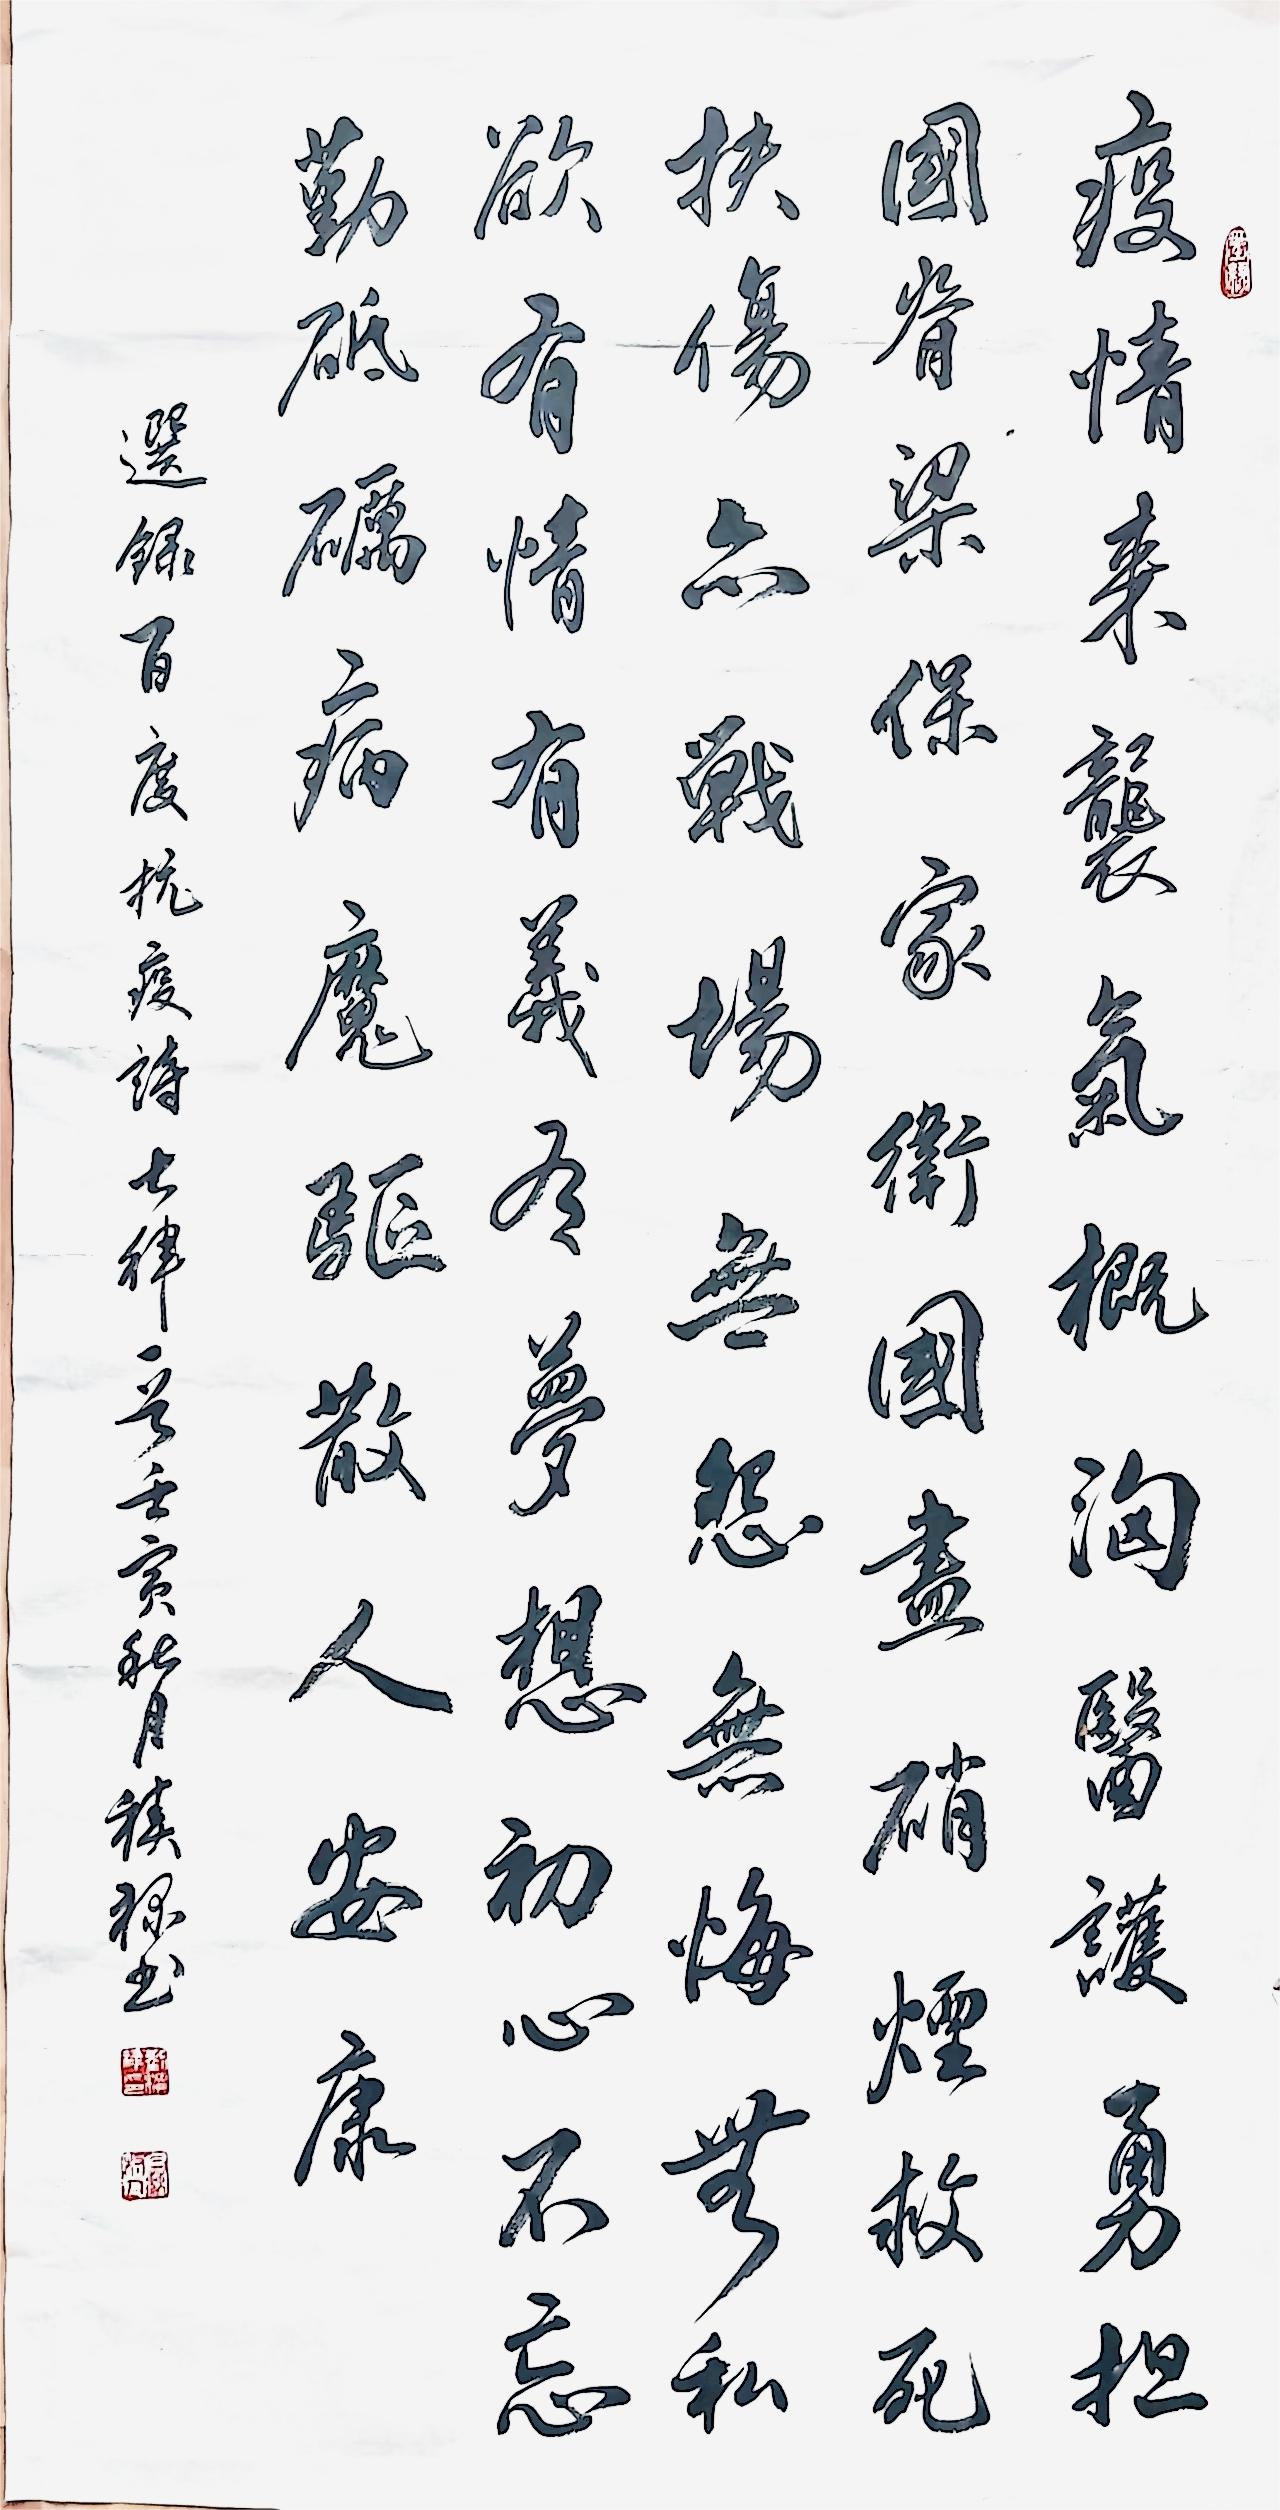 疫情来襲氣概洶醫護勇担
國脊梁保家衛國盡硝煙救死
扶傷亦戰場無怨無悔無私
欲有情有義有夢想初心不忘
勤砥礪病魔驅散人安康
選錄百度抗疫詩七律一首壬寅秋月